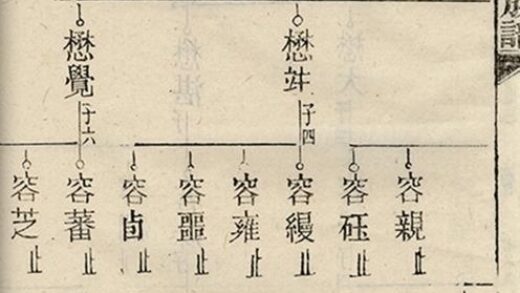 譜
懋
子四
懋覺
子六
容親
止
容砡
止
容縵
止
容雍
止
容噩
止
容卣
止
容蕃
止
容芝
止